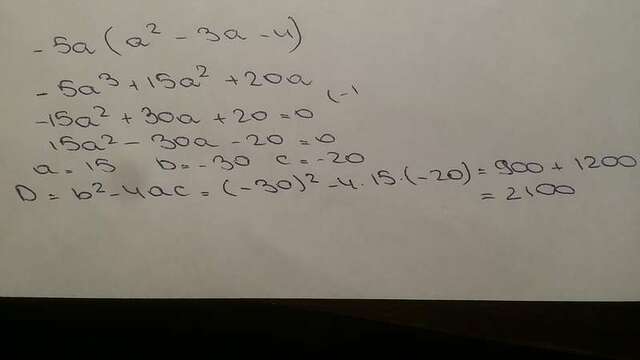 - 5a (a² - 3a - 4)
- 5a³ + 15a² + 20a
(-1
-15a² + 30a + 20 = 0
15a² - 30a - 20 = 0
a = 15 b = -30 c = -20
D = b² - 4ac = (-30)² - 4 · 15 · (-20) = 900 + 1200
= 2100